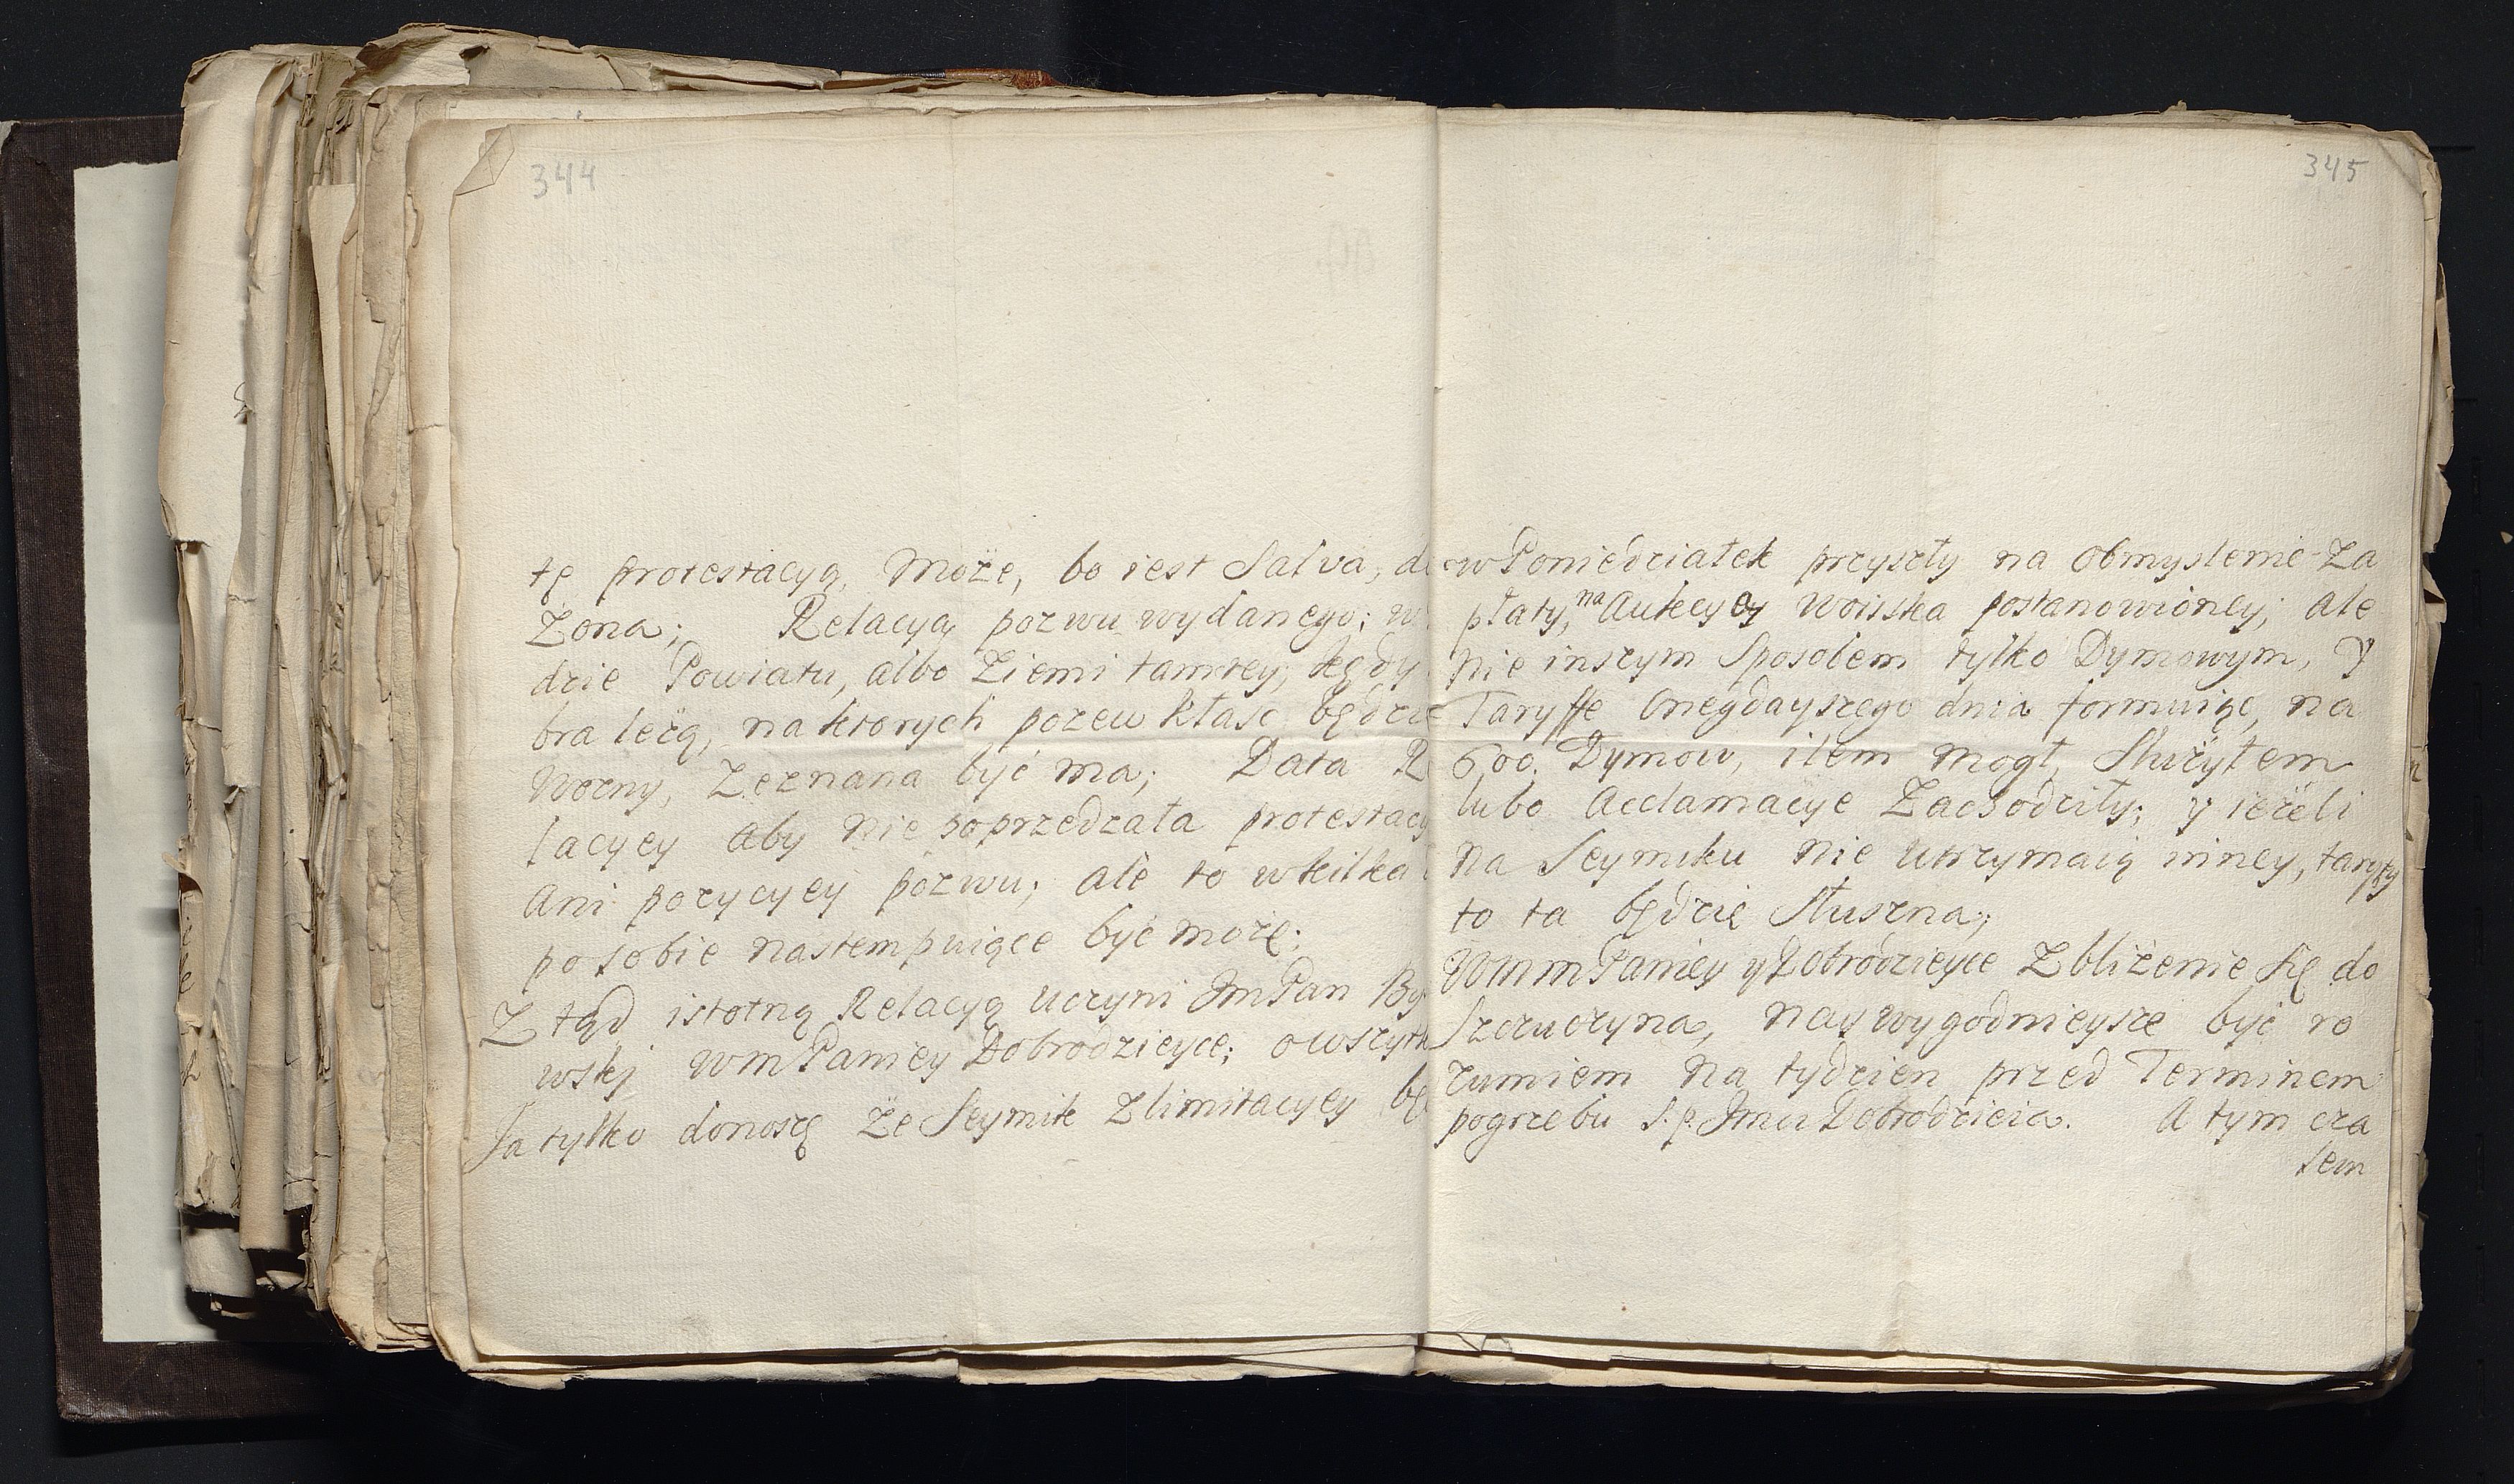 344
tę protestacyą, Może, bo iest Salva, do
żona; Relacyą pozwu wydanego; w
dzie Powiatu, albo Ziemi tamtey, kędy
bra leżą, na ktorych pozew kłasc będzie
Wozny, Zeznana być ma; Data R
lacyey aby nie poprzedzała protestacy
Ani pozycyey pozwu; ale to w kilka
po sobie nastempuiące być może;
Z tąd istotną Relacyą uczyni Jm Pan By
wskj WM Paniey Dobrodzieyce; o wszytk
Ja tylko donoszę że Seymik z limitacyey bę
345
w Poniedziałek przyszły na obmyslenie Za
płaty, na Aukcyey Woiiska postanowioney; ale
nie inszym Sposobem tylko Dymowym, Y
Taryffe Onegdayszego dnia formuiąc, na
600. Dymow, ilem mogł, Służyłem
lubo Acclamacye Zachodziły; y ieżeli
na Seymiku nie Utrzymaią inney, taryfy
to ta będzie Słuszna;
WMM Paniey y Dobrodzieyce Zbliżenie się do
Szczuczyna, naywygodnieysze być ro
zumiem na tydzien przed Terminem
pogrzebu S. p. Jmci Dobrodzieia. A tym cza
sem